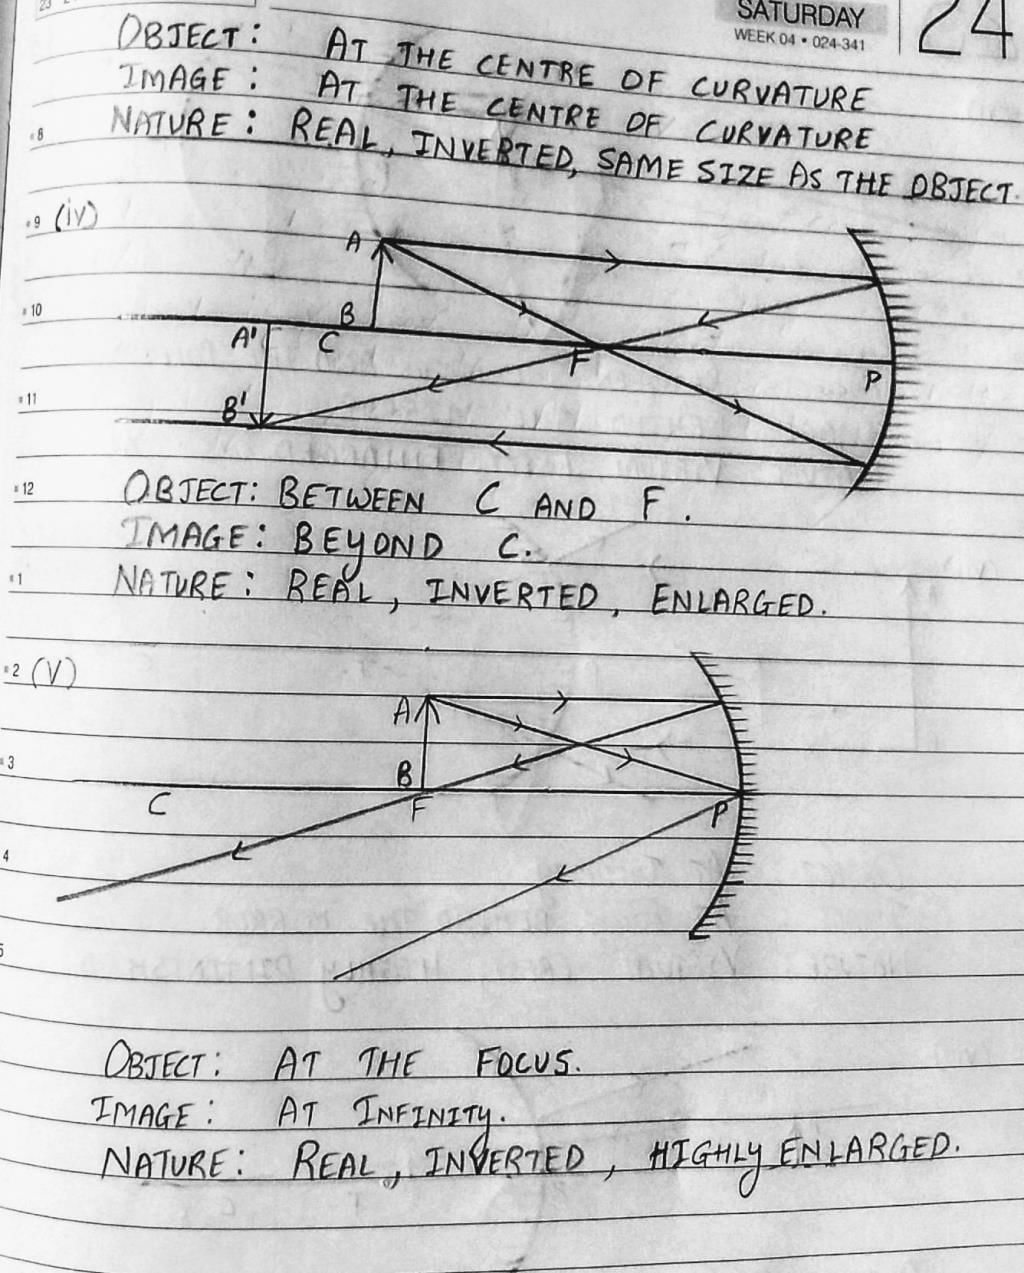 SATURDAY 24
WEEK 04 • 024-341
OBJECT: AT THE CENTRE OF CURVATURE
IMAGE: AT THE CENTRE OF CURVATURE
8
NATURE: REAL, INVERTED, SAME SIZE AS THE OBJECT.
9 (iv)
A
10
B
A' C F P
11
B'
12
OBJECT: BETWEEN C AND F.
IMAGE: BEYOND C.
1
NATURE: REAL, INVERTED, ENLARGED.
2 (V)
A
3
B
C F P
4
5
OBJECT: AT THE FOCUS.
IMAGE: AT INFINITY.
NATURE: REAL, INVERTED, HIGHLY ENLARGED.